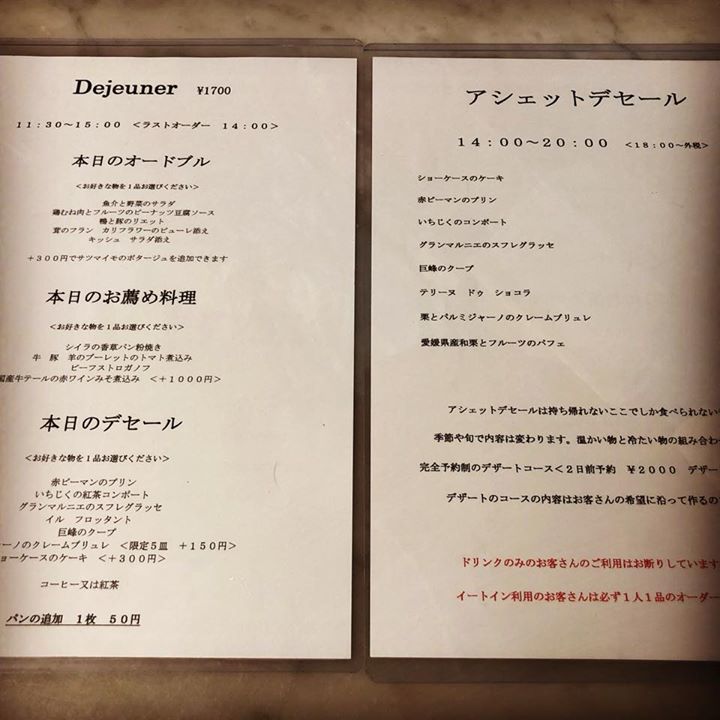 Dejeuner ¥1700
11:30～15:00 ＜ラストオーダー 14:00＞
本日のオードブル
＜お好きな物を１品お選びください＞
魚介と野菜のサラダ
鶏むね肉とフルーツのピーナッツ豆腐ソース
鴨と豚のリエット
茸のフラン カリフラワーのピューレ添え
キッシュ サラダ添え
＋３００円でサツマイモのポタージュを追加できます
本日のお薦め料理
＜お好きな物を１品お選びください＞
シイラの香草パン粉焼き
牛 豚 羊のブーレットのトマト煮込み
ビーフストロガノフ
国産牛テールの赤ワインみそ煮込み ＜＋１０００円＞
本日のデセール
＜お好きな物を１品お選びください＞
赤ピーマンのプリン
いちじくの紅茶コンポート
グランマルニエのスフレグラッセ
イル フロッタント
巨峰のクープ
ーノのクレームブリュレ ＜限定５皿 ＋１５０円＞
ョーケースのケーキ ＜＋３００円＞
コーヒー又は紅茶
パンの追加 １枚 ５０円
アシェットデセール
１４：００～２０：００ ＜１８：００～外税＞
ショーケースのケーキ
赤ピーマンのプリン
いちじくのコンポート
グランマルニエのスフレグラッセ
巨峰のクープ
テリーヌ ドゥ ショコラ
栗とパルミジャーノのクレームブリュレ
愛媛県産和栗とフルーツのパフェ
アシェットデセールは持ち帰れないここでしか食べられない
季節や旬で内容は変わります。温かい物と冷たい物の組み合わ
完全予約制のデザートコース＜２日前予約 ￥２０００ デザー
デザートのコースの内容はお客さんの希望に沿って作るの
ドリンクのみのお客さんのご利用はお断りしています
イートイン利用のお客さんは必ず１人１品のオーダー